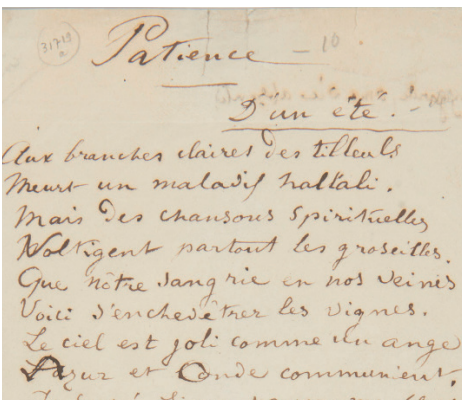 31719
a
Patience — 10
D'un été. —
Aux branches claires des tilleuls
Meurt un maladif hallali.
Mais des chansons spirituelles
Voltigent partout les groseilles.
Que nôtre sang rie en nos veines
Voici s'enchevêtrer les vignes.
Le ciel est joli comme un ange
Azur et Onde communient.